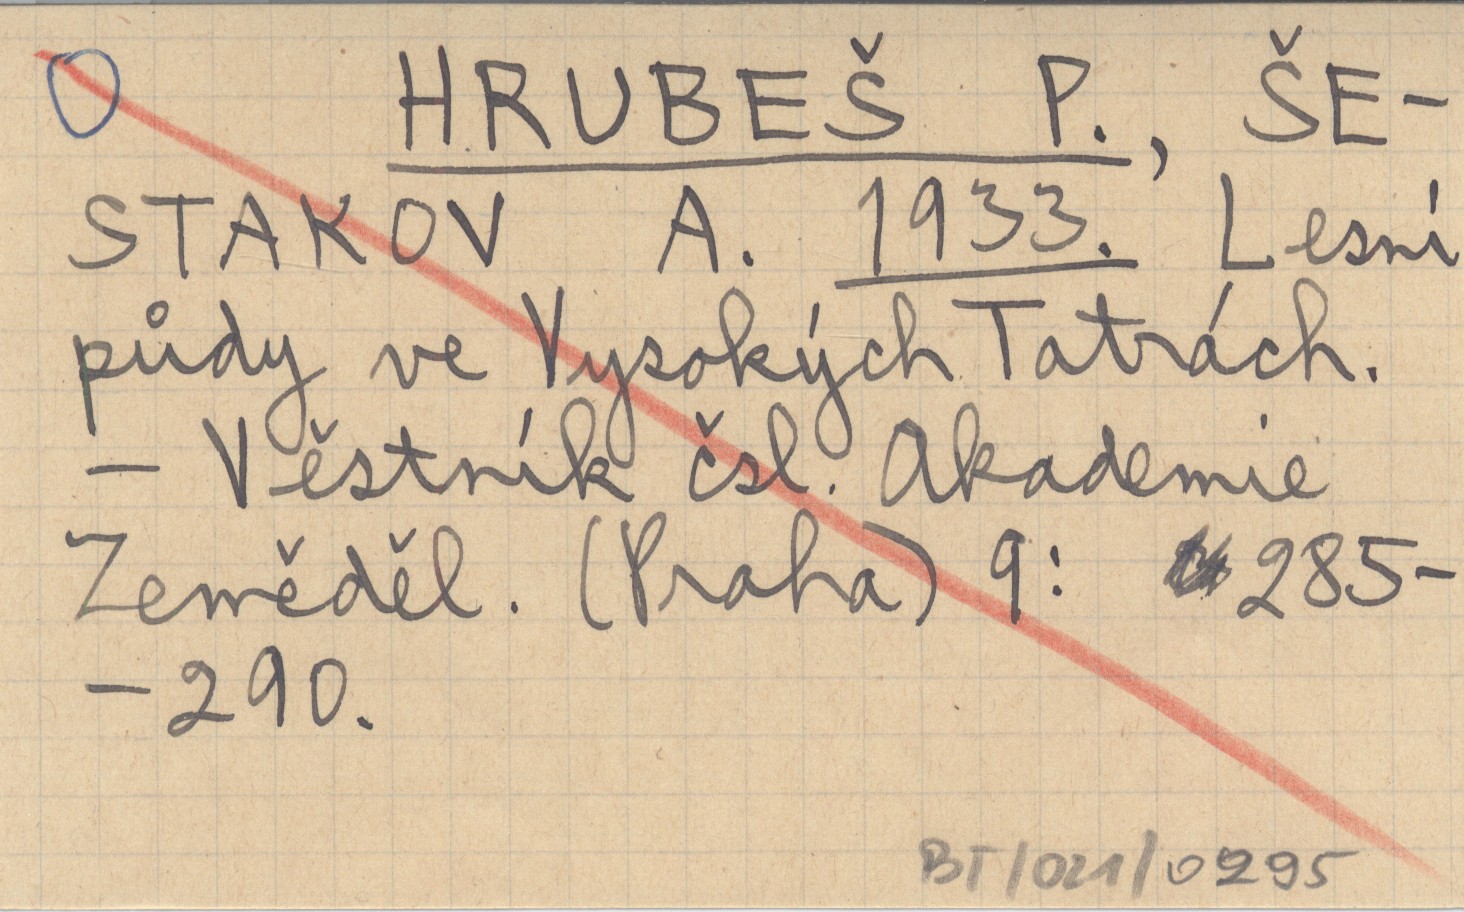 HRUBEŠ P., ŠE-
STAKOV A. 1933. Lesní
půdy ve Vysokých Tatrách.
– Věstník čsl. Akademie
Zeměděl. (Praha) 9: 285-
-290.
BT/021/0295